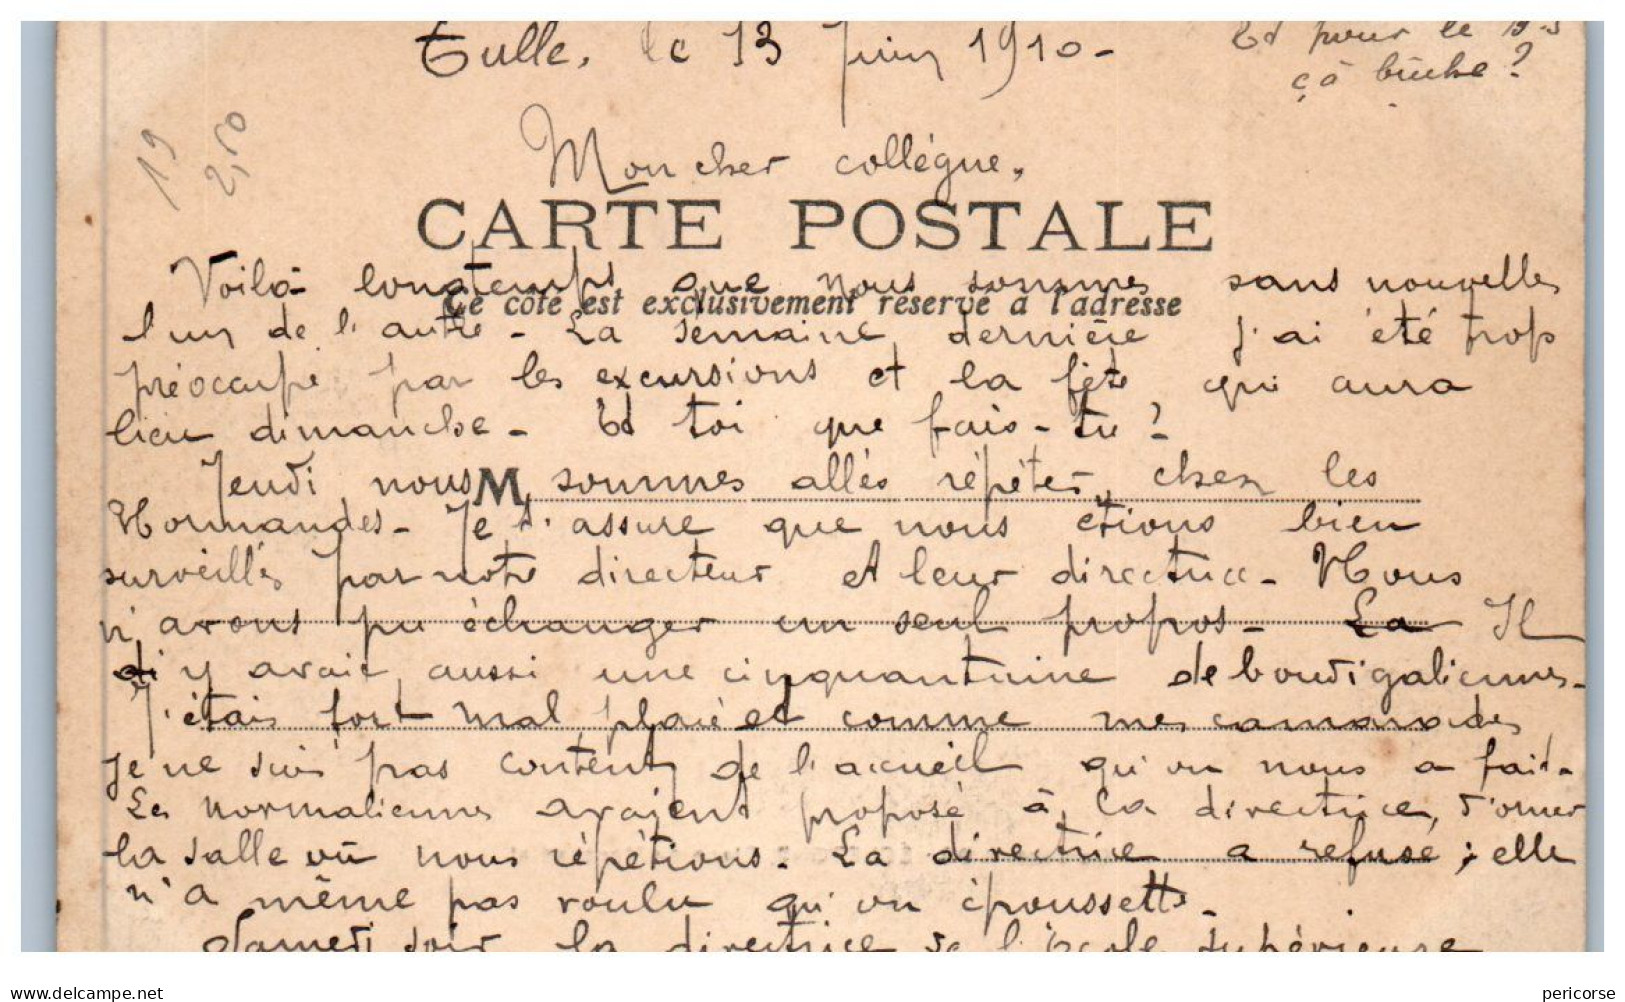 Tulle, le 13 Juin 1910-
Et pour le 19-5
çà bûche?
19
2,50
Mon cher collègue,
CARTE POSTALE
Voilà longtemps que nous sommes sans nouvelles
Ce côté est exclusivement réservé à l'adresse
l'un de l'autre - La semaine dernière j'ai été trop
préoccupé par les excursions et la fête qui aura
lieu dimanche - Et toi que fais-tu?
Jeudi, nous sommes allés répéter, chez les
M
Normandes - Je t'assure que nous étions bien
surveillés par notre directeur et leur directrice - Nous
n'avons pu échanger un seul propos - La Il
di y avait aussi une cinquantaine de boudigaliennes -
J'étais fort mal placé et comme mes camarades
je ne suis pas content de l'accueil qu'on nous a fait -
Les normaliennes avaient proposé à la directrice, d'orner
la salle où nous répétions - La directrice a refusé; elle
n'a même pas voulu qu'on époussette -
Samedi soir la directrice de l'école supérieure
delcampe.net
pericorse